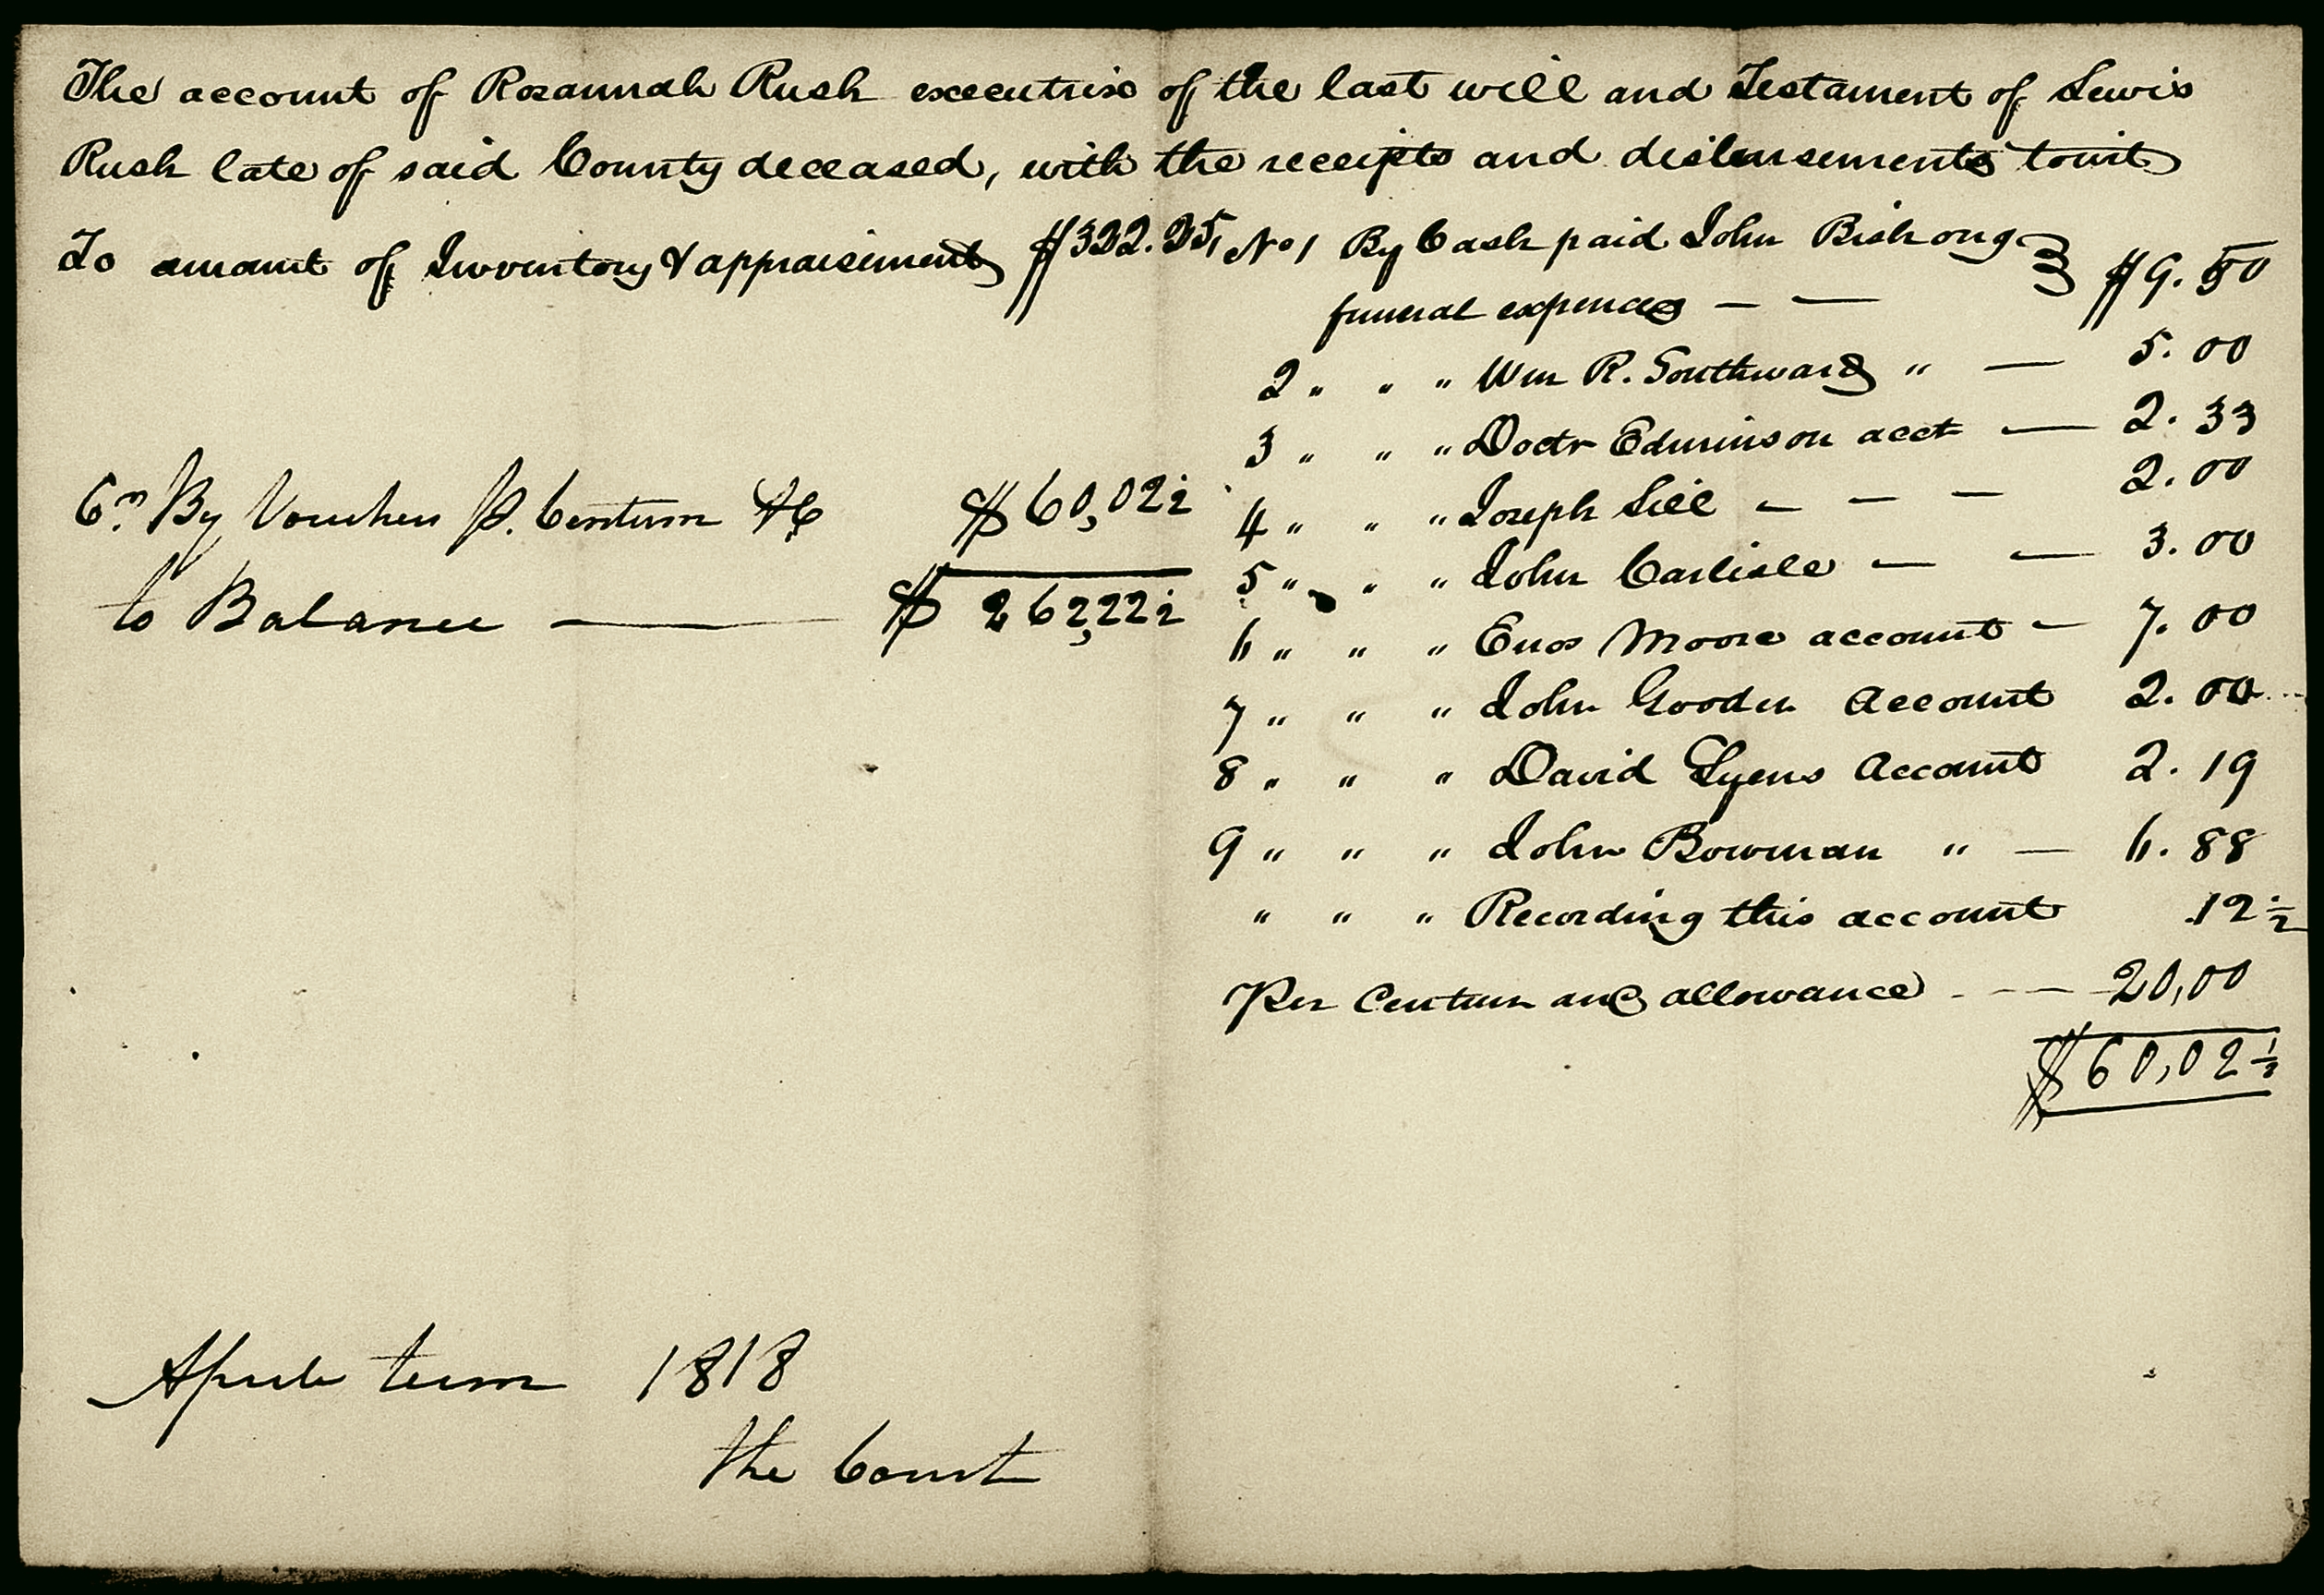 The account of Rosannah Rush executrix of the last will and Testament of Lewis
Rush late of said County deceased, with the receipts and disbursements towit
To amount of Inventory & appraisement $322.25, No 1 By Cash paid John Bishong
funeral expences — — } $9.50
2 " " " Wm R. Southward " — 5.00
3 " " " Doctr Edminson acct — 2.33
4 " " " Joseph Sill — — — 2.00
5 " " " John Carlisle — — 3.00
6 " " " Enos Moore account — 7.00
7 " " " John Gooden Account 2.00
8 " " " David Lyens Account 2.19
9 " " " John Bowman " — 6.88
" " " Recording this account .12½
Per Centum and allowance - — — 20,00
$60,02½
By Vouchers P. Centum &c $60,02½
to Balance — $262,22½
Aprile term 1818
the Court